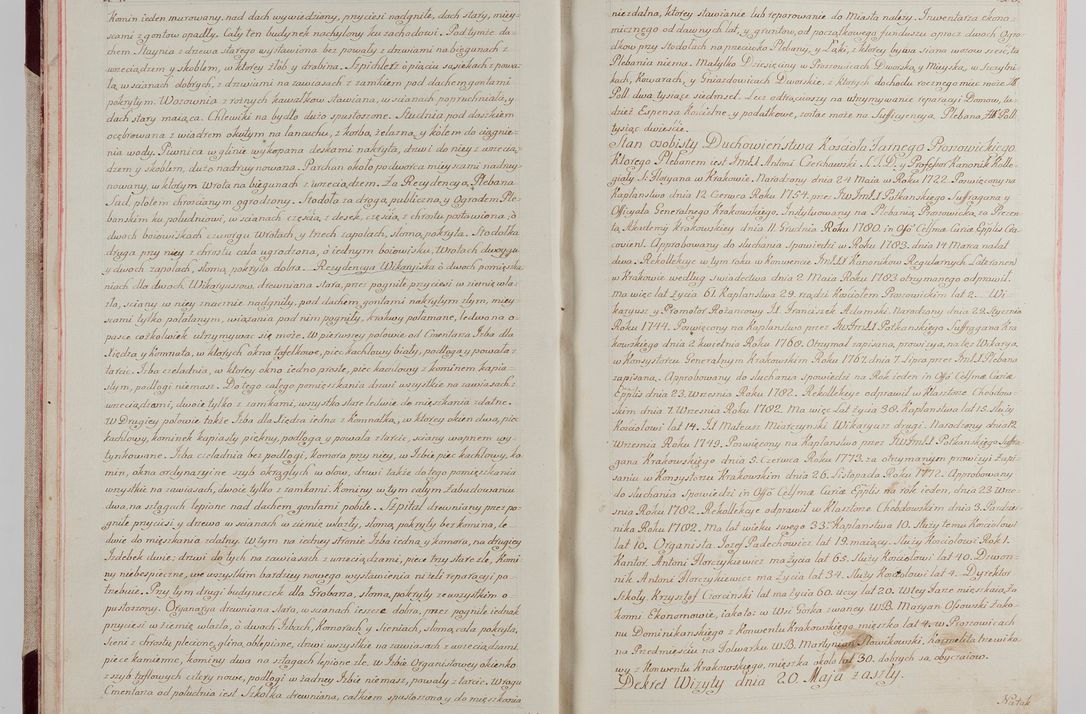 Komin ieden murowany, nad dach wywiedziony, przyciesi nadgniłe, dach stary, miey-
scami z gontow opadły. Cały ten budynek nachylony ku zachodowi. Pod tymże da-
chem Staynia z drzewa starego wystawiona bez powały z drzwiami na biegunach z
wrzeciądzem y skoblem, w ktorey żłob y drabina. Szpichlerz o piąciu sąsiekach z powa-
łą, w scianach dobrych, z drzwiami na zawiasach z zamkiem pod dachem gontami
pokrytym. Wozownia z rożnych kawałkow stawiana, w scianach popruchniała, y
dach stary maiąca. Chlewiki na bydło dużo spustoszone. Studnia pod daszkiem
ocębrowana z wiadrem okutym na łancuchu, z korbą żelazną, y kołem do ciągnie-
nia wody. Piwnica w glinie wykopana deskami nakryta, drzwi do niey z wrzecią-
dzem y skoblem, dużo nadruynowana. Parchan około podworca mieyscami nadruy-
nowany, w ktorym Wrota na biegunach z wrzeciądzem. Za Rezydencyą Plebana
Sad, płotem chrościanym ogrodzony. Stodoła za drogą publiczną, y Ogrodem Ple-
banskim ku południowi, w scianach częścią z desek, częścią z chrostu postawiona, o
dwoch boiowiskach z czworgu Wrotach, y trzech zapolach, słomą pokryta. Stodołka
druga przy niey z chrostu cała ugrodzona, o iednym boiowisku, Wrotach dwoygu
y dwoch zapolach, słomą pokryta dobra. Rezydencya Wikaryiska o dwoch pomieszka-
niach dla dwoch Wikaryuszow, drewniana stara, przez pogniłe przyciesi w ziemię wla-
zła, sciany w niey znacznie nadgniły, pod dachem gontami nakrytym złym, miey-
scami tylko połatanym, wiązania pod nim pogniły, krokwy połamane, ledwo na o-
pasce cożkolwiek utrzymywać się może. W pierwszey połowie od Cmentarza Izba dla
Xiędza y Komnata, w ktorych okna tafelkowe, piec kachlowy biały, podłoga y powała z
tarcic. Izba czeladnia, w ktorey okno iedno proste, piec kachlowy z kominem kapia-
stym, podłogi niemasz. Do tego całego pomieszkania drzwi wszystkie na zawiasach z
wrzeciądzami, dwoie tylko z zamkami, wszystko stare ledwie do mieszkania zdatne.
W Drugiey połowie także Izba dla Xiędza iedna z Komnatką, w ktorey okien dwa, piec
kachlowy, kominek kapiasty piękny, podłoga y powała z tarcic, sciany wapnem wy-
tynkowane. Izba czeladnia bez podłogi, komora przy niey, w Izbie piec kachlowy, ko-
min, okna ordynaryine szyb okrągłych w ołow, drzwi także do tego pomieszkania
wszystkie na zawiasach, dwoie tylko z zamkami. Kominy w tym całym Zabudowaniu
dwa, na szlagach lepione nad dachem gontami pobite. Szpital drewniany przez po-
gniłe przyciesi y drzewo w scianach w ziemię wlazły, słomą pokryty bez komina, le-
dwie do mieszkania zdatny. W tym na iedney stronie Izba iedna, y komora, na drugiey
Izdebek dwie; drzwi do tych na zawiasach z wrzeciądzami, piece trzy stare złe, Komi-
ny niebespieczne, we wszystkim bardziey nowego wystawienia niżeli reparacyi po-
trzebuie. Przy tym drugi budyneczek dla Grobarza, słomą pokryty ze wszystkim o-
pustoszony. Organarya drewniana stara, w scianach ieszcze dobra, przez pogniłe iednak
przyciesi w ziemię wlazła, o dwoch Izbach, Komorach, y Sieniach, słomą cała pokryta,
Sieni z chrostu plecione gliną oblepione, drzwi wszystkie na zawiasach z wrzeciądzami,
piece kamienne, kominy dwa na szlagach lepione złe. W Izbie Organistowey okienko
z szyb tyflowych cztery nowe, podłogi w żadney Izbie niemasz, powały z tarcic. W rogu
Cmentarza od południa iest Szkołka drewniana, całkiem spustoszona y do mieszkania
niezdatna, ktorey stawianie lub reparowanie do Miasta należy. Inwentarza ekono-
micznego od dawnych lat, y gruntow, od początkowego funduszu oprocz dwoch Ogro-
dkow przy Stodołach na przeciwko Plebany, y Łąki, z ktorey bywa siana wozow sześć, ta
Plebania niema. Ma tylko Dziesięciny w Proszowicach Dworską, y Mieyską, w Szczytni-
kach, Kowarach, y Gniazdowicach Dworskie, z ktorych dochodu rocznego miec może Zł:
Poll: dwa tysiące siedmset. Lecz odtrąciwszy na utrzymywanie reparacyi Domow, lu-
dzież Expensa Kościelne, y podatkowe, zostać może na Sufficyencyą Plebana Zł: Poll:
tysiąc dwieście.
Stan osobisty Duchowieństwa Kościoła Farnego Proszowickiego
Ktorego Plebanem iest JmX: Antoni Czerchawski S.T.D. y Professor Kanonik Kolle-
giaty S: Floryana w Krakowie. Narodzony dnia 24 Maia w Roku 1722. Poswięcony na
Kapłanstwo dnia 12 Czerwca Roku 1754. przez JWJmX Potkanskiego Suffragana y
Officyała Generalnego Krakowskiego. Indyktowany na Plebanią Proszowicką, za Prezen-
tą Akademij Krakowskiey dnia 11 Grudnia Roku 1780. in Offo Celsmæ Curiæ Epplis Cra-
coviens: Approbowany do słuchania Spowiedzi w Roku 1783. dnia 14 Marca na lat
dwa. Rekollekcye w tym roku w Konwencie JmXX Kanonikow Regularnych Lateranens:
w Krakowie według swiadectwa dnia 2. Maia Roku 1783 otrzymanego odprawił.
Ma więc lat życia 61. Kapłanstwa 29. rządzi Kościołem Proszowickim lat 2. Wi-
karyusz y Promotor Rożancowy X Franciszek Adamski. Narodzony dnia 29. Stycznia
Roku 1744. Poswięcony na Kapłanstwo przez JWJmX Potkanskiego Suffragana Kra-
kowskiego dnia 2. kwietnia Roku 1768. Otrzymał zapisaną prowizyą, na tęż Wikaryą,
w Konsystorzu Generalnym Krakowskim Roku 1767. dnia 7. Lipca przez JmX Plebana
zapisaną. Approbowany do słuchania spowiedzi na Rok ieden in Offo Celsmæ Curiæ
Epplis dnia 23. Wrzesnia Roku 1782. Rekollekcye odprawił w Klasztorze Chebdow-
skim dnia 7. Wrzesnia Roku 1782. Ma więc Lat życia 38. Kapłanstwa lat 15. służy
Kościołowi lat 14. X Mateusz Miarczynski Wikaryusz drugi. Narodzony dnia 12.
Wrzesnia Roku 1749. Poswięcony na Kapłanstwo przez JWJmX Potkanskiego Suffra-
gana Krakowskiego dnia 5. Czerwca Roku 1773. za otrzymanym prowizyi Zapi-
saniu w Konsystorzu Krakowskim dnia 26. Listopada Roku 1772. Approbowany
do słuchania Spowiedzi in Offo Celsmæ Curiæ Epplis na rok ieden, dnia 23 Wrze-
snia Roku 1782. Rekollekcye odprawił w Klasztorze Chebdowskim dnia 3. Pazdzier-
nika Roku 1782. Ma lat wieku swego 33. Kapłanstwa 10. Służy temu Kościołowi
lat 10. Organista Jozef Padechowicz lat 19. maiący. Służy Kościołowi Rok 1.
Kantor Antoni Florczykiewicz ma życia lat 65. Służy Kościołowi lat 40. Dzwon-
nik Antoni Florczykiewicz ma Życia lat 34. Służy Kościołowi lat 4. Dyrektor
Szkoły Krzysztof Ciorcinski lat ma życia 60. uczy lat 20. W tey Farze mieszkaią, Za-
konni Ekonomowie, iako to: w Wsi Gorka zwaney WB: Maryan Ossowski Zako-
nu Dominikanskiego z Konwentu Krakowskiego mieszka lat 4. w Proszowicach
na Przedmieściu na Folwarku WB: Martynian Nowikowski Karmelita trzewiko-
wy z Konwentu Krakowskiego, mieszka około lat 30. dobrych są obyczaiow.
Dekret Wizyty dnia 20 Maja zaszły.
Na tak